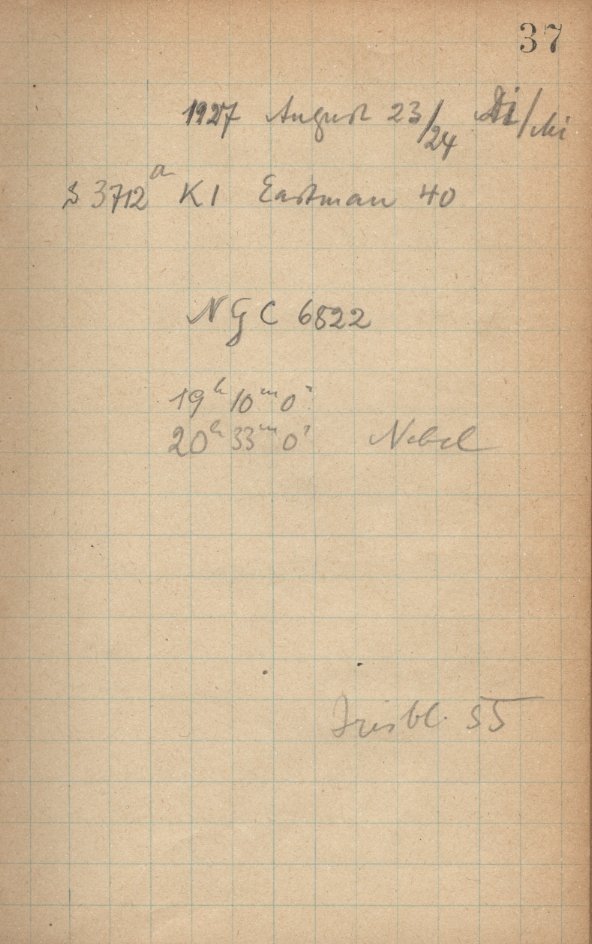 37
1927 August 23/24 Di/Mi
S 3712a K1 Eastman 40
NGC 6822
19h 10m 0s
20h 33m 0s Nebel
Irisbl. 55